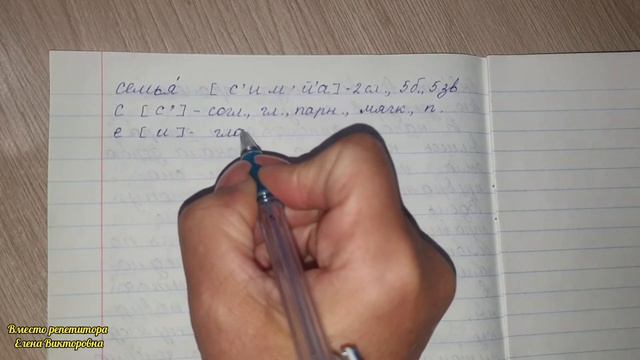 семья́ [с'им'й'а]-2сл., 5б., 5зв
с [с'] - согл., гл., парн., мягк., п.
е [и] - гла
Вместо репетитора
Елена Викторовна